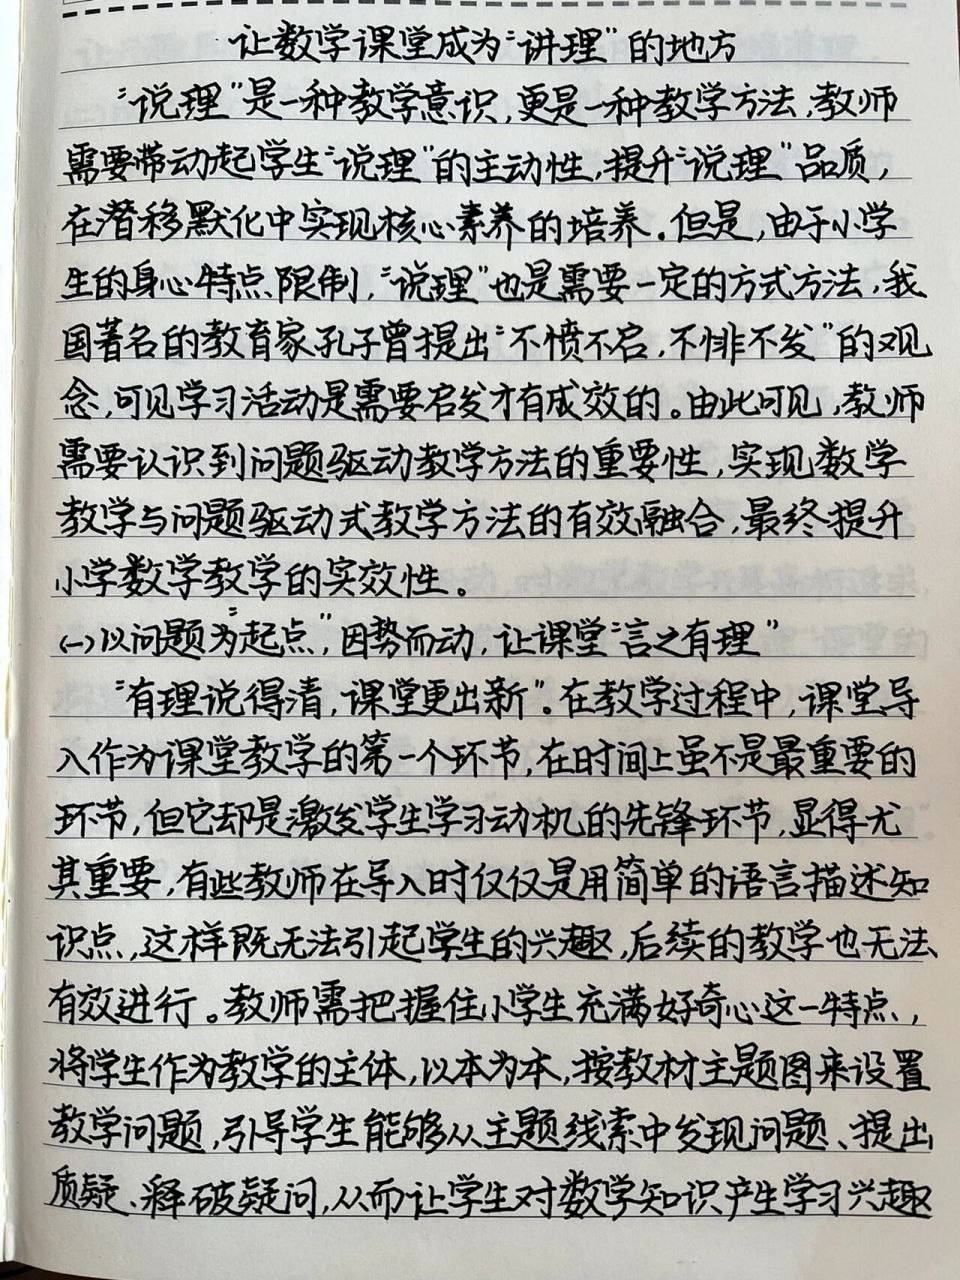 让数学课堂成为“讲理”的地方
“说理”是一种教学意识，更是一种教学方法，教师
需要带动起学生“说理”的主动性，提升“说理”品质，
在潜移默化中实现核心素养的培养。但是，由于小学
生的身心特点限制，“说理”也是需要一定的方式方法，我
国著名的教育家孔子曾提出“不愤不启，不悱不发”的观
念，可见学习活动是需要启发才有成效的。由此可见，教师
需要认识到问题驱动教学方法的重要性，实现数学
教学与问题驱动式教学方法的有效融合，最终提升
小学数学教学的实效性。
(一)以问题为“起点”，因势而动，让课堂“言之有理”
“有理说得清，课堂更出新”。在教学过程中，课堂导
入作为课堂教学的第一个环节，在时间上虽不是最重要的
环节，但它却是激发学生学习动机的先锋环节，显得尤
其重要，有些教师在导入时仅仅是用简单的语言描述知
识点，这样既无法引起学生的兴趣，后续的教学也无法
有效进行。教师需把握住小学生充满好奇心这一特点，
将学生作为教学的主体，以本为本，按教材主题图来设置
教学问题，引导学生能够从主题线索中发现问题、提出
质疑、释破疑问，从而让学生对数学知识产生学习兴趣